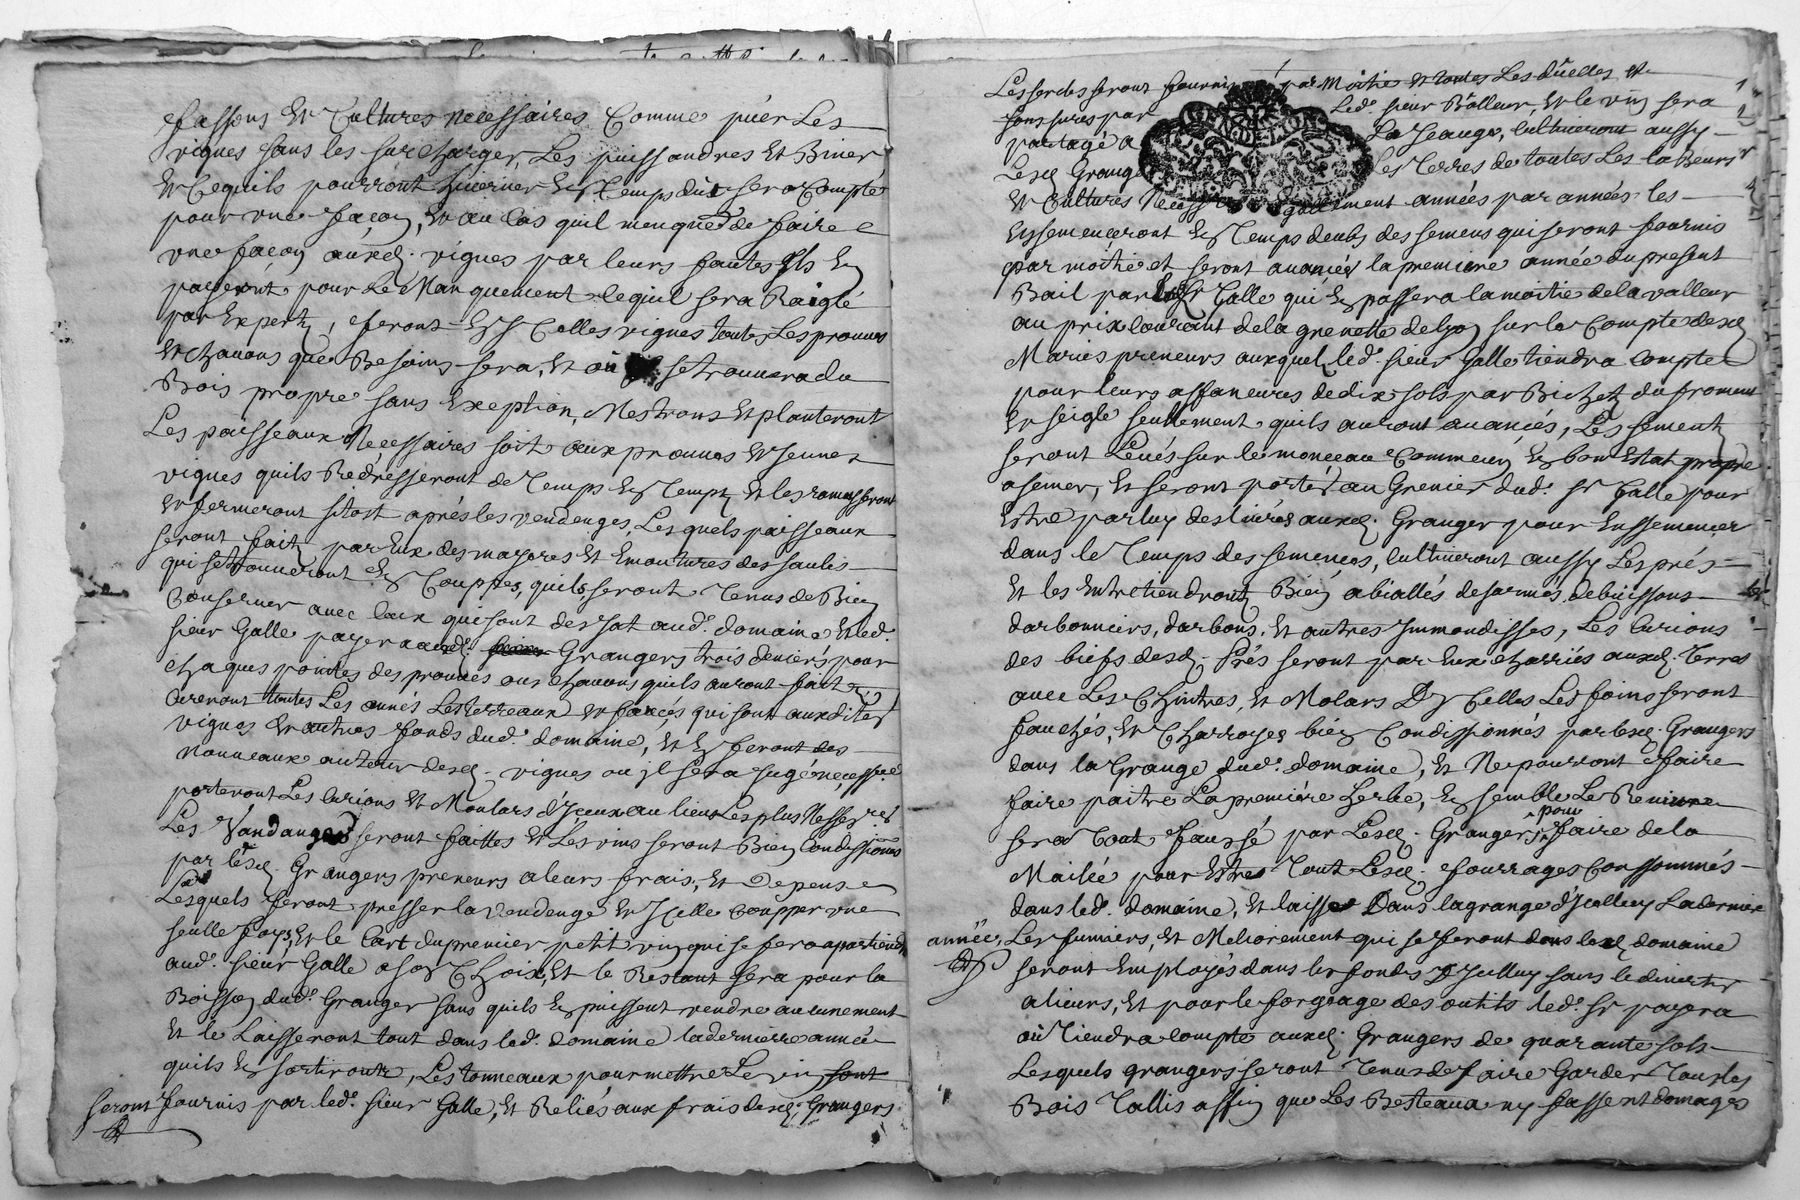 fassons Et Cultures necessaires Comme puer Les
vignes sans les surcharger, Les puissandres Et Biner
Et Cequils pourront hiverner En Temps dub sera Compté
pour une façon, Et au Cas quil menquet de faire
une façon auxd. vignes par leurs fautes Ils En
payeront pour Le Manquement lequil sera Raiglé
par Expertz, feront En Icelles vignes toutes Les prouues
Et chauons que Besoins sera, Et ou se trouuera du
Bois propre sans Exeption, Mestrons Et planteront
Les paisseaux Neçessaires soit aux prouues Et Jeunes
vignes quils Redresseront de Temps En Tempz, Et les ramasseront
Et fermeront sitost aprés les vendenges, Lesquels paisseaux
seront faitz par Eux des mayeres Et Emontures des saules
qui se trouueront En Couppes, quils seront Tenus de Bien
Conseruer auec Ceux qui sont desja aud. domaine Et led.
sieur Galle payera auxd. Grangers trois deniers pour
chaques pointes des prouues ou chauons quils auront fait
Cureront toutes Les annés Les terreaux Et fossés qui sont auxdites
vignes Et autres fonds dud. domaine, Et En feront des
nouueaux autour desd. vignes ou jl sera jugé necessre
porteront Les Curions Et Moulars d'Jceux au lieux Les plus Nessesres
Les Vandanges seront faittes Et Les vins seront Bien Condissionnés
par lesd. Grangers preneurs a leurs frais, Et Depens
Lesquels feront presser la vendenge Et Jcelle Coupper une
seulle foys, Et le Cart du premier petit vin qui se fera apartiendra
aud. sieur Galle a son Choix, Et le Restant sera pour la
Boisson dud. Granger sans quils En puissent vendre aucunement
Et le Laisseront tout dans led. domaine la derniere année
quils En sortiront, Les tonneaux pour mettre Le vin sont
seront fournis par led. sieur Galle, Et Reliés aux frais desd. Grangers
Les serches seront fournis par Moitie Et toutes Les duelles Et
fonsures par Led. sieur Bailleur, Et le vin sera
partagé a La Jeauge, Cultiueront aussy
Lesd. Grang Les Terres de toutes Les labeurs
Et Cultures Necess galement années par années les
Ensemenceront En Temps deubz des semens qui seront fournis
par moitié et seront auancés la premiere année du present
Bail par led. sr Galle qui En passera la moitie de la valleur
au prix Courant de la grenette de Lyon sur le Compte desd.
Mariés preneurs auxquel led. sieur Galle tiendra Compte
pour leurs affaneures de dix sols par Bichetz du froment
Et seigle seullement quils auront auancés, Les sementz
seront Leués sur le monceau Commeun En bon Estat propre
a semer, Et seront portés au Grenier dud. sr Galle pour
Estre par luy desliures auxd. Granger pour Enssemencer
dans le Temps des semences, Cultiueront aussy Les prés
Et les Entretiendrontz Bien abiallés desarmés de buissons
darbonniers, darbons, Et autres Jmmondisses, Les Curions
des biefs desd. Prés seront par Eux charriés auxd. Terres
auec Les Chintres, Et Molars D'Jcelles Les foins seront
fauchés, Et Charroyes bien Condissionnés par lesd. Grangers
dans la Grange dud. domaine, Et Ne pourront faire
faire paitre La premiére herbe, En semble Le Reuiure
sera tout faussé par Lesd. Grangers pour En faire de la
Mailée pour Estres Tout Lesd. fourrages Conssommés
dans led. domaine, Et laisse Dans la grange d'Jcelluy La derniere
année, Les fumiers, Et Meliorement qui se feront dans led. domaine
seront Employés dans les fonds D'Jcelluy sans le diuertir
alieurs, Et pour le forgeage des outils led. sr payra
ou Tiendra Compte auxd. Grangers de quarante sols
Lesquels grangers seront Tenus de faire Garder Tous les
Bois Tallis affin que Les Besteaux ny fassent domages